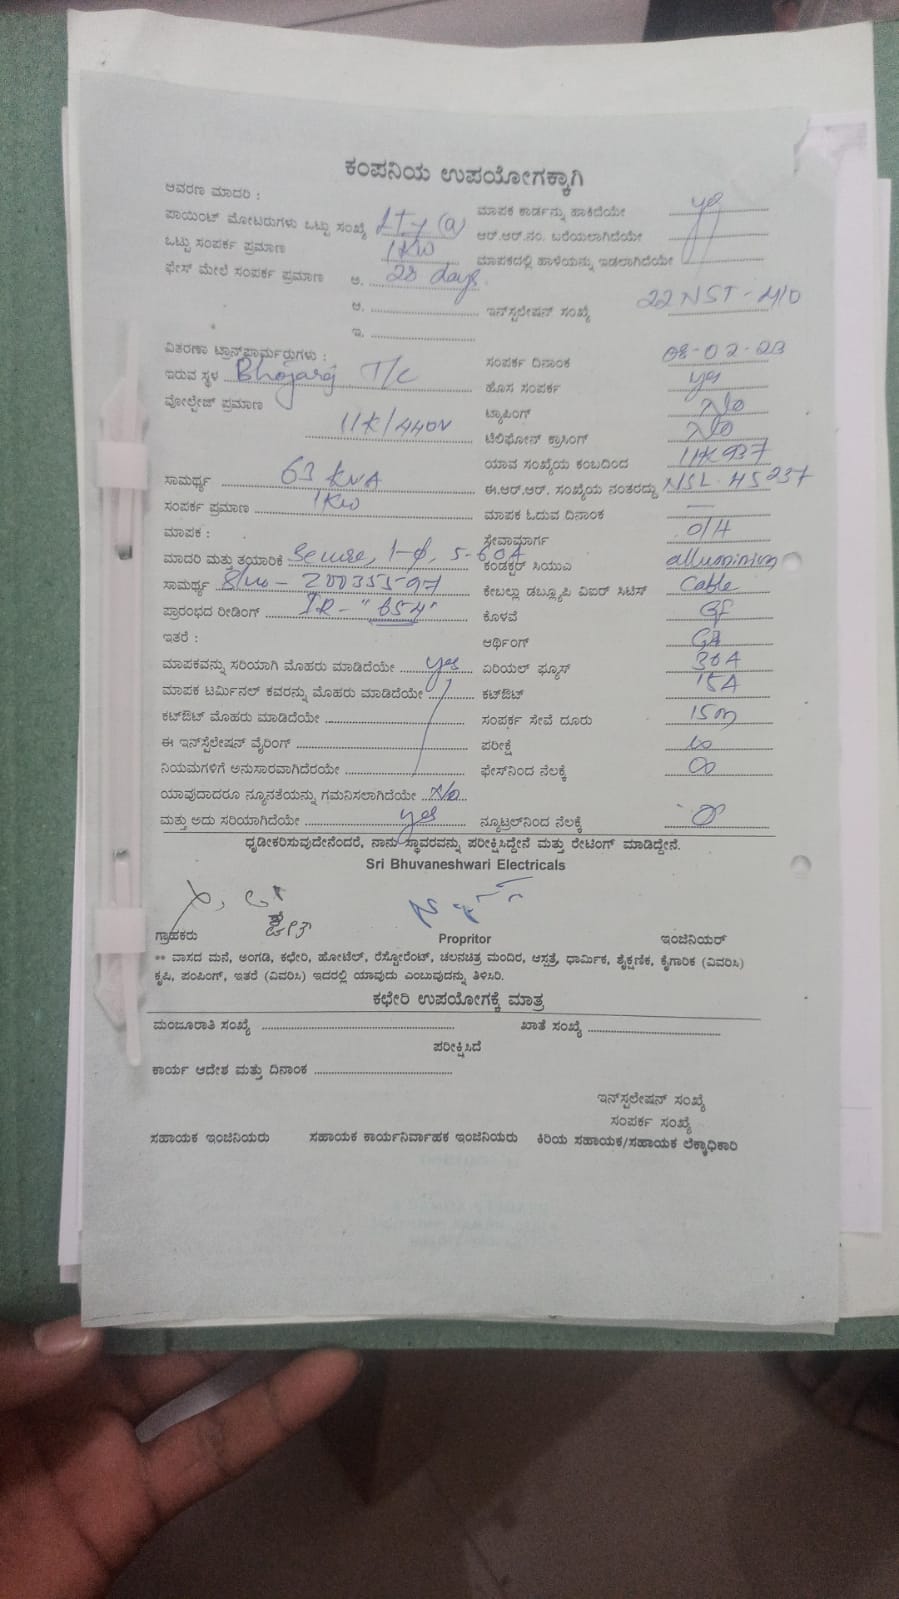 ಕಂಪನಿಯ ಉಪಯೋಗಕ್ಕಾಗಿ
ಆವರಣ ಮಾದರಿ :
ಮಾಪಕ ಕಾರ್ಡನ್ನು ಹಾಕಿದೆಯೇ yes
ಪಾಯಿಂಟ್ ಮೋಟರುಗಳು ಒಟ್ಟು ಸಂಖ್ಯೆ (a) ಆರ್.ಆರ್.ನಂ. ಬರೆಯಲಾಗಿದೆಯೇ
ಒಟ್ಟು ಸಂಪರ್ಕ ಪ್ರಮಾಣ 1KW ಮಾಪಕದಲ್ಲಿ ಹಾಳೆಯನ್ನು ಇಡಲಾಗಿದೆಯೇ
ಫೇಸ್ ಮೇಲೆ ಸಂಪರ್ಕ ಪ್ರಮಾಣ ಅ. 28 days.
ಆ. ಇನ್‌ಸ್ಟಲೇಷನ್ ಸಂಖ್ಯೆ 22 NST-410
ಇ.
ವಿತರಣಾ ಟ್ರಾನ್ಸ್‌ಫಾರ್ಮರ್‍ರುಗಳು : ಸಂಪರ್ಕ ದಿನಾಂಕ 08-02-23
ಇರುವ ಸ್ಥಳ Bhojaraj T/C ಹೊಸ ಸಂಪರ್ಕ yes
ವೋಲ್ಟೇಜ್ ಪ್ರಮಾಣ ಟ್ಯಾಪಿಂಗ್ No
11K/440V ಟೆಲಿಫೋನ್ ಕ್ರಾಸಿಂಗ್ No
ಯಾವ ಸಂಖ್ಯೆಯ ಕಂಬದಿಂದ 11K937
ಸಾಮರ್ಥ್ಯ 63 KVA ಈ.ಆರ್.ಆರ್. ಸಂಖ್ಯೆಯ ನಂತರದ್ದು NSL-45237
ಸಂಪರ್ಕ ಪ್ರಮಾಣ 1KW ಮಾಪಕ ಓದುವ ದಿನಾಂಕ —
ಮಾಪಕ : ಸೇವಾಮಾರ್ಗ O/H
ಮಾದರಿ ಮತ್ತು ತಯಾರಿಕೆ Secure, 1-φ, 5-60A ಕಂಡಕ್ಟರ್ ಸಿಯುಎ alluminium
ಸಾಮರ್ಥ್ಯ Sl no - ಕೇಬಲ್ಲು ಡಬ್ಲ್ಯೂಪಿ ವಿಐರ್ ಸಿಟಿಸ್ Cable
ಪ್ರಾರಂಭದ ರೀಡಿಂಗ್ IR- ಕೊಳವೆ
ಇತರೆ : ಆರ್ಥಿಂಗ್
ಮಾಪಕವನ್ನು ಸರಿಯಾಗಿ ಮೊಹರು ಮಾಡಿದೆಯೇ yes ಏರಿಯಲ್ ಫ್ಯೂಸ್ 30A
ಮಾಪಕ ಟರ್ಮಿನಲ್ ಕವರನ್ನು ಮೊಹರು ಮಾಡಿದೆಯೇ ಕಟ್‌ಔಟ್ 15A
ಕಟ್‌ಔಟ್ ಮೊಹರು ಮಾಡಿದೆಯೇ ಸಂಪರ್ಕ ಸೇವೆ ದೂರು 15m
ಈ ಇನ್‌ಸ್ಟೆಲೇಷನ್ ವೈರಿಂಗ್ ಪರೀಕ್ಷೆ ∞
ನಿಯಮಗಳಿಗೆ ಅನುಸಾರವಾಗಿದೆರಯೇ ಫೇಸ್‌ನಿಂದ ನೆಲಕ್ಕೆ ∞
ಯಾವುದಾದರೂ ನ್ಯೂನತೆಯನ್ನು ಗಮನಿಸಲಾಗಿದೆಯೇ No
ಮತ್ತು ಅದು ಸರಿಯಾಗಿದೆಯೇ yes ನ್ಯೂಟ್ರಲ್‌ನಿಂದ ನೆಲಕ್ಕೆ
ಧೃಡೀಕರಿಸುವುದೇನೆಂದರೆ, ನಾನು ಸ್ಥಾವರವನ್ನು ಪರೀಕ್ಷಿಸಿದ್ದೇನೆ ಮತ್ತು ರೇಟಿಂಗ್ ಮಾಡಿದ್ದೇನೆ.
Sri Bhuvaneshwari Electricals
ಗ್ರಾಹಕರು Propritor ಇಂಜಿನಿಯರ್
** ವಾಸದ ಮನೆ, ಅಂಗಡಿ, ಕಛೇರಿ, ಹೋಟೆಲ್, ರೆಸ್ಟೋರೆಂಟ್, ಚಲನಚಿತ್ರ ಮಂದಿರ, ಆಸ್ಪತ್ರೆ, ಧಾರ್ಮಿಕ, ಶೈಕ್ಷಣಿಕ, ಕೈಗಾರಿಕ (ವಿವರಿಸಿ)
ಕೃಷಿ, ಪಂಪಿಂಗ್, ಇತರೆ (ವಿವರಿಸಿ) ಇದರಲ್ಲಿ ಯಾವುದು ಎಂಬುವುದನ್ನು ತಿಳಿಸಿರಿ.
ಕಛೇರಿ ಉಪಯೋಗಕ್ಕೆ ಮಾತ್ರ
ಮಂಜೂರಾತಿ ಸಂಖ್ಯೆ ಖಾತೆ ಸಂಖ್ಯೆ
ಪರೀಕ್ಷಿಸಿದೆ
ಕಾರ್ಯ ಆದೇಶ ಮತ್ತು ದಿನಾಂಕ
ಇನ್‌ಸ್ಟಲೇಷನ್ ಸಂಖ್ಯೆ
ಸಂಪರ್ಕ ಸಂಖ್ಯೆ
ಸಹಾಯಕ ಇಂಜಿನಿಯರು ಸಹಾಯಕ ಕಾರ್ಯನಿರ್ವಾಹಕ ಇಂಜಿನಿಯರು ಕಿರಿಯ ಸಹಾಯಕ/ಸಹಾಯಕ ಲೆಕ್ಕಾಧಿಕಾರಿ